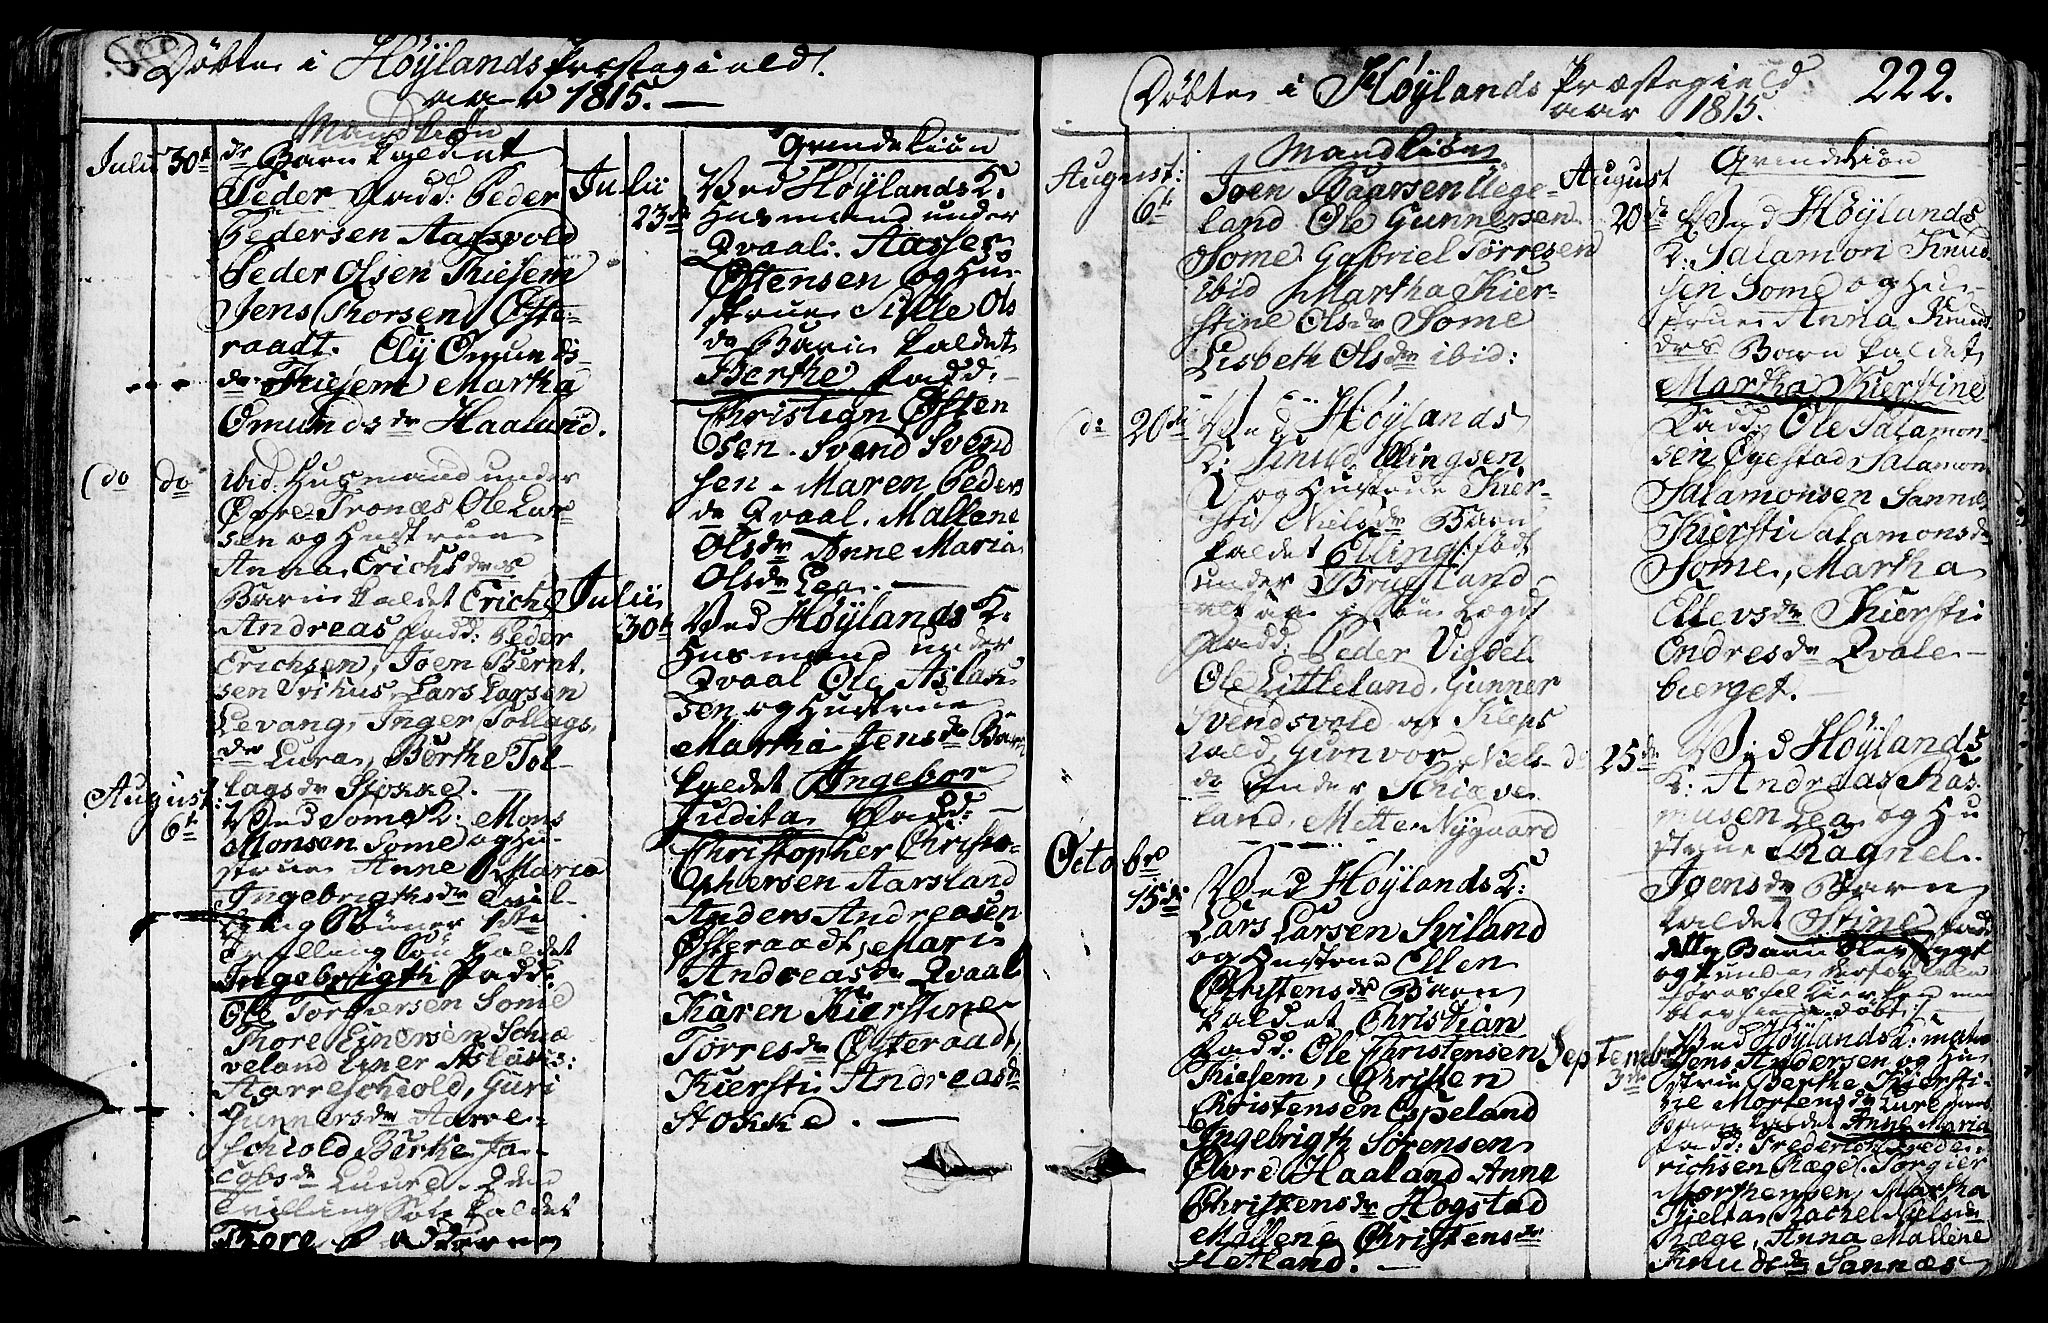 Döbte i Höÿlands Præstegield.
aar 1815.
Mandkiön
Julii 30te
dr Barn kaldet
Peder Fadd: Peder
Pedersen Aarsvold
Peder Olsen Thiesem
Jens Thorsen Öste-
raadt. Elÿ Omunds
dr Thiesem Martha
Omundsdr Haaland.
do do
ibid: Husmand under
Övre Tronæs Ole Lar-
sen og Hustrue
Anna Erichsdrs
Barn kaldet Erich
Andreas Fadd: Peder
Erichsen, Joen Bernt
sen Lars Larsen
Levang, Inger Tollags
dr Lura, Berthe Tol-
lagsdr Stokke.
August:
6te
Ved Some K: Mons
Monsen Some og Hu-
strue Anne Maria
Ingebrigthsdr Tvil-
ling Börner 1ste
Tvilling Sön kaldet
Ingebrigth Fadd:
Ole Torkersen Some
Thore Einersen Schia
veland Einer Aslaks:
Aarreschiold, Guri
Gunnersdr Aarre-
schiold Berthe Ja-
cobsdr Luure. 2den
Tvilling Sön kaldet
Thore Fadderne
Qvindekiön
Julii
23de
Ved Höylands K:
Husmand under
Qvaal: Aasser
Östensen og Hu-
strue Sille Ols
dr Barn kaldet
Berthe Fadd:
Christian Östen
sen. Svend Svend
sen. Maren Peders
dr Qvaal. Mallene
Olsdr Anne Maria
Olsdr Lea.
Julii
30te
Ved Höylands K:
Husmand under
Qvaal Ole Aslak
sen og Hustrue
Martha Jensdr Barn
kaldet Ingebor
Judita Fadd:
Christopher Christo-
phersen Aarsland
Anders Andreasen
Österaadt, Maris
Andreasdr Qvaal
Karen Kierstine
Torresdr Österaadt,
Kiersti Andreasdr
Stokke.
Döbte i Höylands Præstegield
aar 1815.
222.
Mandkiön
August:
6te
Joen Baarsen Uege-
land Ole Gunnersen
Some Gabriel Törresen
ibid Martha Kier-
stine Olsdr Some
Lisbeth Olsdr ibid:
do 20de
Ved Höylands
K: Knud Ellingsen
og Hustrue Kier-
sti Nielsdr Barn
kaldet Elling: födt
under Brueland
Fadd: Peder Vigdel
Ole Littleland. Gunner
Svendsvold
vold, Giönvor Niels-
dr under Schiæve
land, Mette Nygaard
Octobr
15de
Ved Höylands K:
Lars Larsen Sviland
og Hustrue Ellen
Christensdr Barn
kaldet Christian
Fadd: Ole Christensen
Thiesem, Christen
Christensen Espeland
Ingebrigth Sörensen
Övre Haaland Anna
Christensdr Hogstad
Mallene Christensdr
Hetland.
Qvindekiön
August
20de
Ved Höylands
K: Salamon Knud-
sen Some og Hu-
strue Anna Knuds
drs Barn kaldet
Martha Kierstine
Fadd: Ole Salamon-
sen Egestad, Salamon
Salamonsen Sannes
Kiersti Salamonsdr
Some, Martha
Ellevsdr Kiersti
Endresdr Qvale-
bierget.
do 25de
Ved Höylands
K: Andreas Ras-
musen Lea og Hu
strue Ragnel
Joensdr Barn
kaldet Trine Fadd
Septembr
3de
Ved Höylands K:
Jens Andersen og Hu
strue Berthe Kiersti-
ne Mortensdr Lure
Barn kaldet Anne Maria
Fadd: Frederich Frede-
richsen Ræge. Torgier
Morthensen, Martha
Thielta, Rachel Nielsdr
Ræge, Anna Mallene
Knudsdr Sannæs